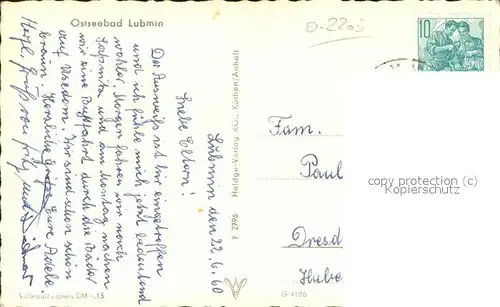 Ostseebad Lubmin
D-2203
10
Lubmin den 22.6.60
Liebe Eltern!
Der Ausweis ist hier eingetroffen
und ich fühle mich jetzt bedeutend
wohler. Morgen fahren wir nach
Saßnitz und am Montag machen
wir eine Busfahrt durch die Bäder
auf Usedom. Wir sind schon schön
braun. Herzliche Grüße Eure Adele
Herzl. Grüße von und
Verbraucherpreis DM -,15
F 2796 Heldge-Verlag KG., Köthen/Anhalt
Fam.
Paul
Dresd
Hübe
copyright protected
Kopierschutz